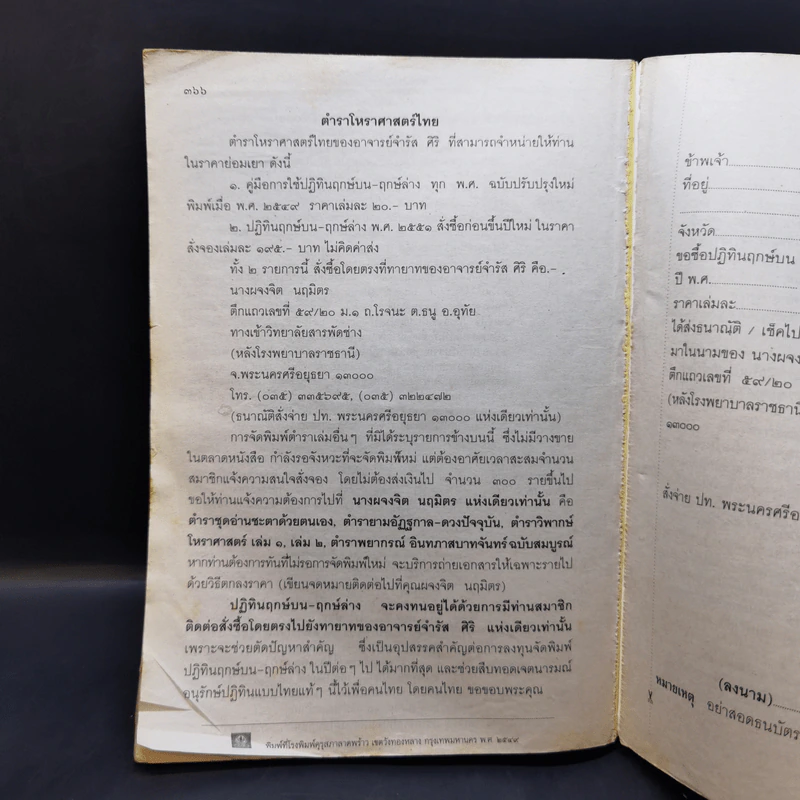 ๓๖๖
ตำราโหราศาสตร์ไทย
ตำราโหราศาสตร์ไทยของอาจารย์จำรัส ศิริ ที่สามารถจำหน่ายให้ท่าน
ในราคาย่อมเยา ดังนี้
๑. คู่มือการใช้ปฏิทินฤกษ์บน-ฤกษ์ล่าง ทุก พ.ศ. ฉบับปรับปรุงใหม่
พิมพ์เมื่อ พ.ศ. ๒๕๔๙ ราคาเล่มละ ๒๐.- บาท
๒. ปฏิทินฤกษ์บน-ฤกษ์ล่าง พ.ศ. ๒๕๕๑ สั่งซื้อก่อนขึ้นปีใหม่ ในราคา
สั่งจองเล่มละ ๑๙๕.- บาท ไม่คิดค่าส่ง
ทั้ง ๒ รายการนี้ สั่งซื้อโดยตรงที่ทายาทของอาจารย์จำรัส ศิริ คือ.-
นางผจงจิต นฤมิตร
ตึกแถวเลขที่ ๕๙/๒๐ ม.๑ ถ.โรจนะ ต.ธนู อ.อุทัย
ทางเข้าวิทยาลัยสารพัดช่าง
(หลังโรงพยาบาลราชธานี)
จ.พระนครศรีอยุธยา ๑๓๐๐๐
โทร. (๐๓๕) ๓๓๕๖๙๕, (๐๓๕) ๓๒๒๔๗๒
(ธนาณัติสั่งจ่าย ปท. พระนครศรีอยุธยา ๑๓๐๐๐ แห่งเดียวเท่านั้น)
การจัดพิมพ์ตำราเล่มอื่นๆ ที่มิได้ระบุรายการข้างบนนี้ ซึ่งไม่มีวางขาย
ในตลาดหนังสือ กำลังรอจังหวะที่จะจัดพิมพ์ใหม่ แต่ต้องอาศัยเวลาสะสมจำนวน
สมาชิกแจ้งความสนใจสั่งจอง โดยไม่ต้องส่งเงินไป จำนวน ๓๐๐ รายขึ้นไป
ขอให้ท่านแจ้งความต้องการไปที่ นางผจงจิต นฤมิตร แห่งเดียวเท่านั้น คือ
ตำราชุดอ่านชะตาด้วยตนเอง, ตำรายามอัฏฐกาล-ดวงปัจจุบัน, ตำราวิพากษ์
โหราศาสตร์ เล่ม ๑, เล่ม ๒, ตำราพยากรณ์ อินทภาสบาทจันทร์ ฉบับสมบูรณ์
หากท่านต้องการทันทีไม่รอการจัดพิมพ์ใหม่ จะบริการถ่ายเอกสารให้เฉพาะรายไป
ด้วยวิธีตกลงราคา (เขียนจดหมายติดต่อไปที่คุณผจงจิต นฤมิตร)
ปฏิทินฤกษ์บน-ฤกษ์ล่าง จะคงทนอยู่ได้ด้วยการมีท่านสมาชิก
ติดต่อสั่งซื้อโดยตรงไปยังทายาทของอาจารย์จำรัส ศิริ แห่งเดียวเท่านั้น
เพราะจะช่วยตัดปัญหาสำคัญ ซึ่งเป็นอุปสรรคสำคัญต่อการลงทุนจัดพิมพ์
ปฏิทินฤกษ์บน-ฤกษ์ล่าง ในปีต่อๆ ไป ได้มากที่สุด และช่วยสืบทอดเจตนารมณ์
อนุรักษ์ปฏิทินแบบไทยแท้ๆ นี้ไว้เพื่อคนไทย โดยคนไทย ขอขอบพระคุณ
พิมพ์ที่โรงพิมพ์คุรุสภาลาดพร้าว เขตวังทองหลาง กรุงเทพมหานคร พ.ศ. ๒๕๔๙
ข้าพเจ้า
ที่อยู่
จังหวัด
ขอซื้อปฏิทินฤกษ์บน
ปี พ.ศ.
ราคาเล่มละ
ได้ส่งธนาณัติ / เช็คไป
มาในนามของ นางผจง
ตึกแถวเลขที่ ๕๙/๒๐
(หลังโรงพยาบาลราชธานี)
๑๓๐๐๐
สั่งจ่าย ปท. พระนครศรีอ
(ลงนาม)
หมายเหตุ อย่าสอดธนบัตร